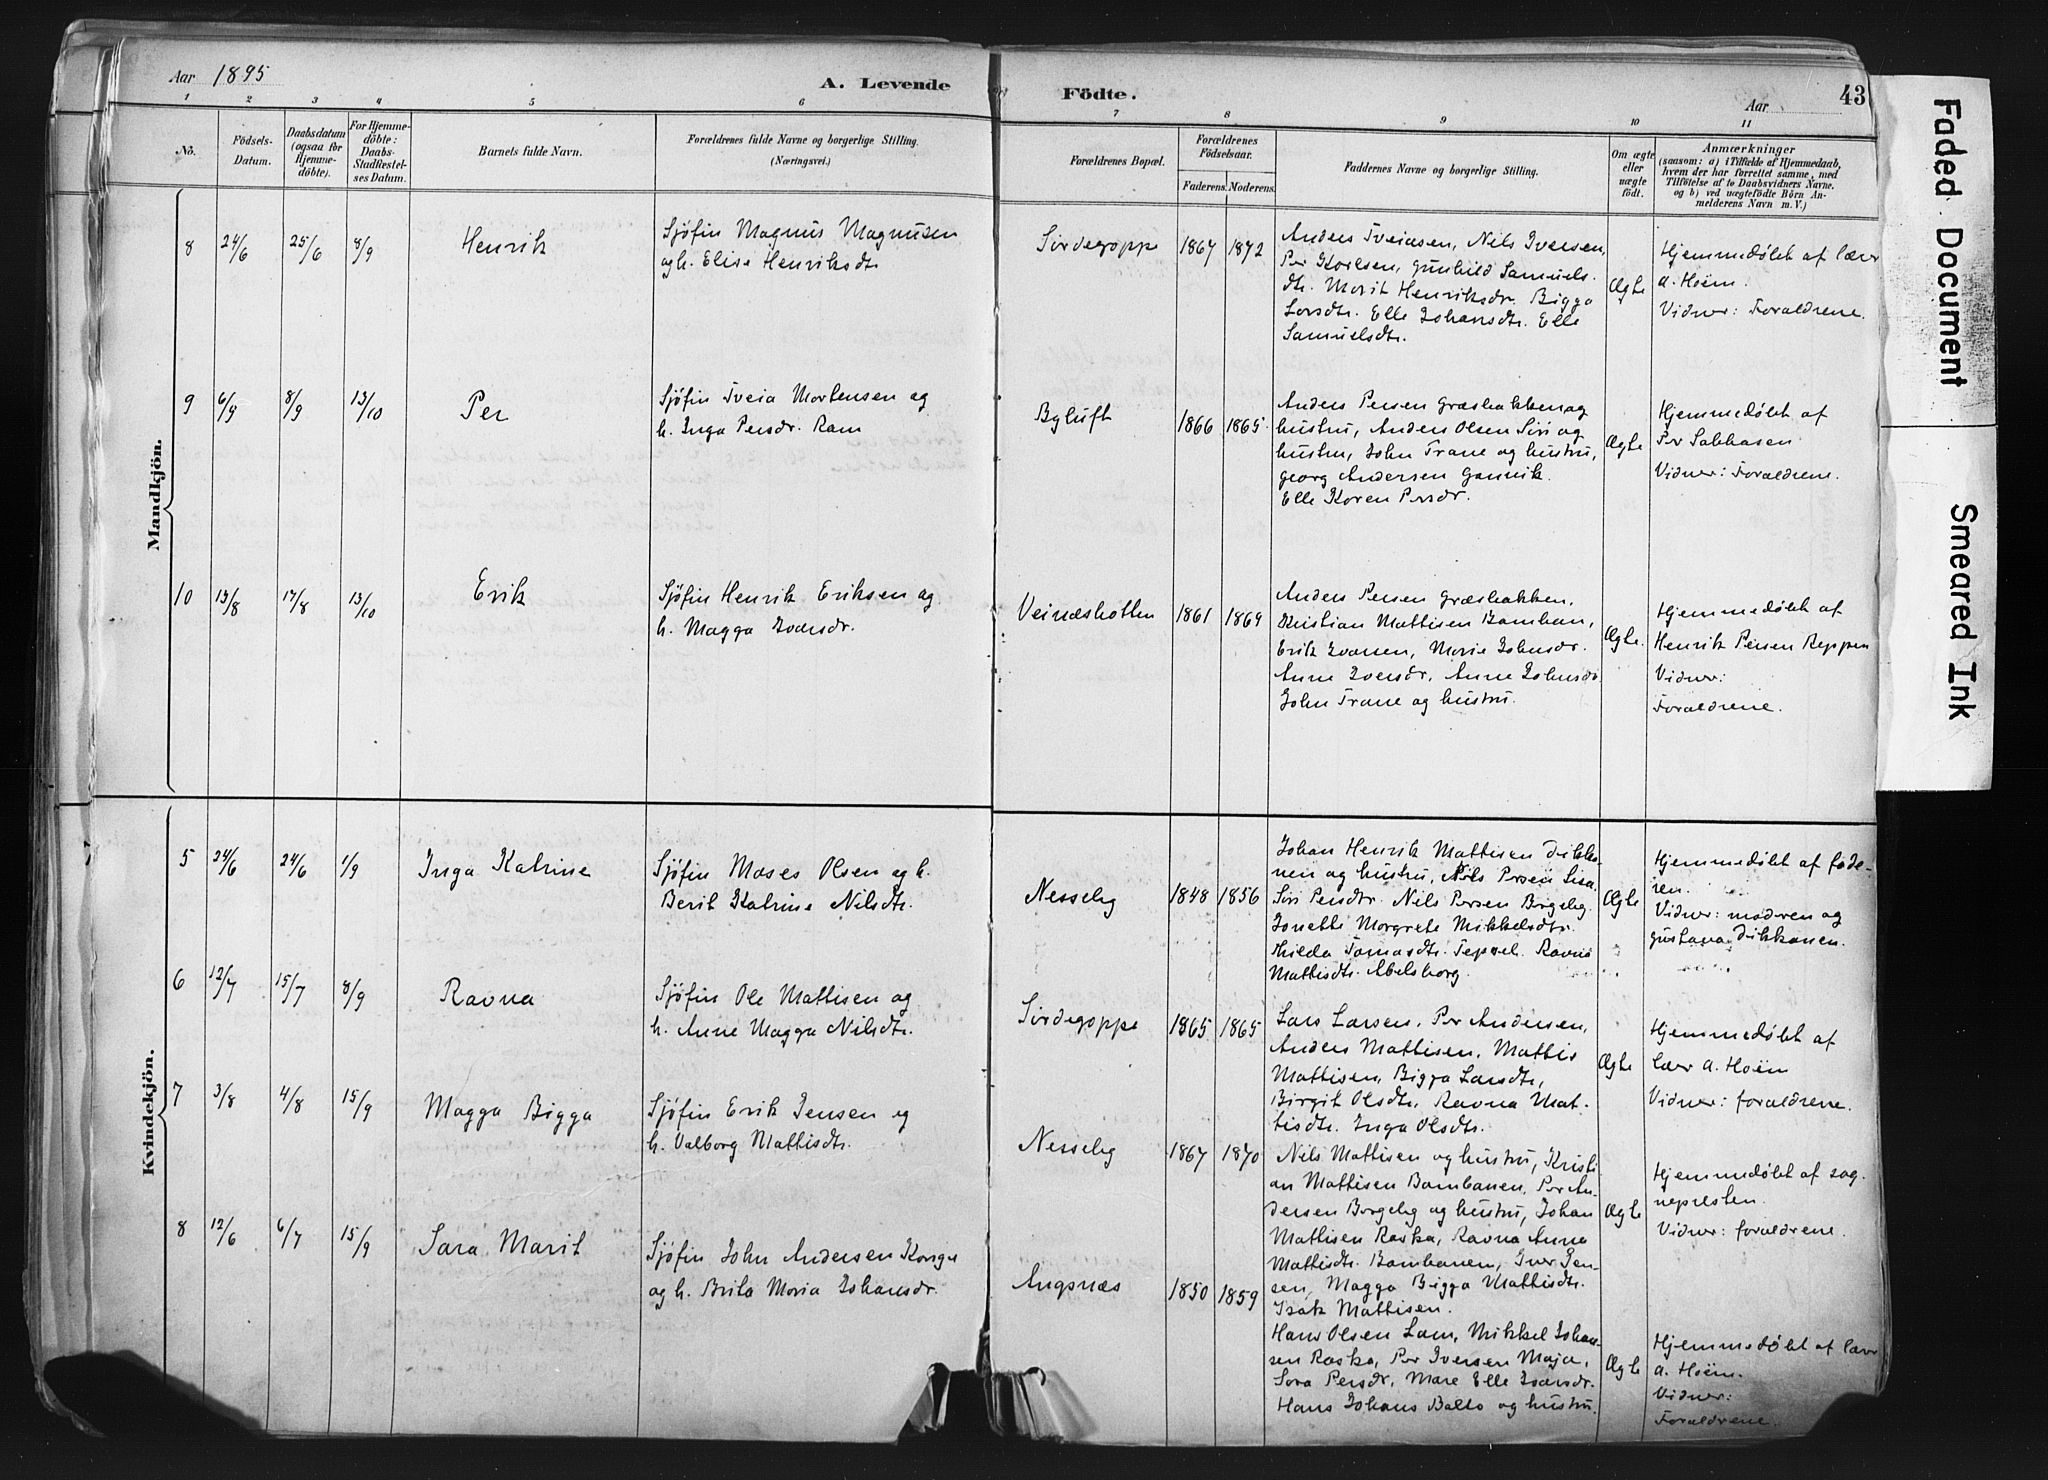 Aar 1895
A. Levende
Födte.
Aar
43
1 2 3 4 5 6 7 8 9 10 11
No.
Födsels-
Datum.
Daabsdatum
(ogsaa for
Hjemme-
döbte).
For Hjemme-
döbte:
Daabs-
Stadfæstel-
ses Datum.
Barnets fulde Navn.
Forældrenes fulde Navne og borgerlige Stilling.
(Næringsvei.)
Forældrenes Bopæl.
Forældrenes
Födselsaar.
Faderens. Moderens.
Faddernes Navne og borgerlige Stilling.
Om ægte
eller
uægte
födt.
Anmærkninger
(saasom: a) i Tilfælde af Hjemmedaab,
hvem der har forrettet samme, med
Tilföielse af to Daabsvidners Navne,
og b) ved uægtefödte Börn An-
melderens Navn m. V.)
Mandkjön.
8 24/6 25/6 8/9 Henrik
Sjøfin Magnus Magnusen
og h. Elise Henriksdtr.
Sørdegoppe 1867 1872
Anders Tveiasen, Nils Iversen,
Per Karlsen, Gunhild Samuels-
dtr. Marit Henriksdr. Bigga
Larsdtr. Elle Johansdtr. Elle
Samuelsdtr.
Ægte
Hjemmedøbt af lærer
A. Hoëm.
Vidner: Forældrene.
9 6/9 8/9 13/10 Per
Sjøfin Tveia Mortensen og
h. Inga Persdr. Ram
Byluft 1866 1865
Anders Persen Græsbakken og
hustru, Anders Olsen Siri og
hustru, John Trane og hustru,
Georg Andersen Garnvik.
Elle Karen Persdr.
Ægte
Hjemmedøbt af
Per Sabbasen
Vidner: Forældrene.
10 13/8 17/8 13/10 Erik
Sjøfin Henrik Eriksen og
h. Magga Ivarsdr.
Veinæsbotten 1861 1869
Anders Persen Græsbakken,
Kristian Mattisen Bamban,
Erik Ivarsen, Marie Johnsdr.
Anne Iversdr, Anne Johnsdr
John Trane og hustru.
Ægte.
Hjemmedøbt af
Henrik Persen Reppen
Vidner:
Forældrene.
Kvindekjön.
5 24/6 24/6 1/9 Inga Katrine
Sjøfin Moses Olsen og h.
Berit Katrine Nilsdtr.
Nesseby 1848 1856
Johan Henrik Mattisen Dikka-
nen og hustru, Nils Persen Lisa
Siri Persdtr. Nils Persen Bergeby
Jonette Margrete Mikkelsdtr.
Hilda Tomasdtr. Teppel. Ravna
Mattisdtr. Abelsborg.
Ægte
Hjemmedøbt af fade-
ren.
Vidner: moderen og
Gustava Dikkanen.
6 12/7 15/7 8/9 Ravna
Sjøfin Ole Mattisen og
h. Anne Magga Nilsdtr.
Sørdegoppe 1865 1865
Lars Larsen, Per Andersen,
Anders Mattisen, Mattis
Mattisen, Bigga Larsdtr,
Birgit Olsdtr, Ravna Mat-
tisdtr. Inga Olsdtr.
Ægte
Hjemmedøbt af
lærer A. Hoëm
Vidner: forældrene.
7 3/8 4/8 15/9 Magga Bigga
Sjøfin Erik Jensen og
h. Valborg Mattisdtr.
Nesseby 1867 1870
Nils Mattisen og hustru, Kristi-
an Mattisen Bambanen, Per An-
dersen Bergeby og hustru, Johan
Mattisen Raska, Ravna Anna
Mattisdtr. Bambanen, Iver Jen-
sen, Magga Bigga Mattisdtr.
Isak Mattisen.
Ægte
Hjemmedøbt af sog-
nepresten.
Vidner: forældrene.
8 12/6 6/7 15/9 Sara Marit
Sjøfin John Andersen Kønge
og h. Brita Maria Johansdr.
Angsnæs 1850 1859
Hans Olsen Lam, Mikkel Johan-
sen Raska, Per Iversen Maja,
Sara Persdr, Mare Elle Ivarsdr.
Hans Johans Balto og hustru.
Ægte
Hjemmedøbt af lærer
A. Hoëm.
Vidner:
Forældrene.
Faded Document
Smeared Ink